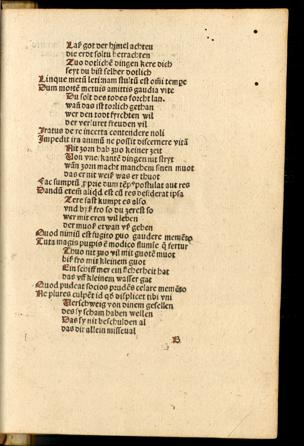 Laß got der hymel achten
die erdt soltu betrachten
Zuo dotlichē dingen kere dich
seyt du bist selber dotlich
Linque metū leti nam stultū est om̄i tempe
Dum mortē metuis amittis gaudia vite
Du solt des todes forcht lan
wan̄ das ist torlich gethan
wer den todt fyrchten wil
der verluret freuden vil
Iratus de re incerta contendere noli
Impedit ira animū ne possit discernere vitā
Nit zorn hab zuo keiner zeit
Von vne kantē dingen nit stryt
wan̄ zorn macht manchem sinen muot
das er nit weiß was er thuot
Fac sumptū propere dum res postulat aut res
Dandū etem̄ aliqd est cū res desiderat ipsa
Zere fast kumpt es also
vnd byß fro so du zerest so
wer mit eren wil leben
der muoß etwan vß geben
Quod nimiū est fugito puo gaudere memēto
Tuta magis puppis ē modico flumīe q̄ fertur
Thuo nit zuo vil mit guotē muot
biß fro mit kleinem guot
Ein schiff mer ein sicherheit hat
das vff kleinem wasser gat
Quod pudeat socios prudēs celare memēto
Ne plures culpēt id qd displicet tibi vni
Verschweig von dinem gesellen
des sy scham haben wellen
Das sy nit beschulden al
das dir allein misseual
B